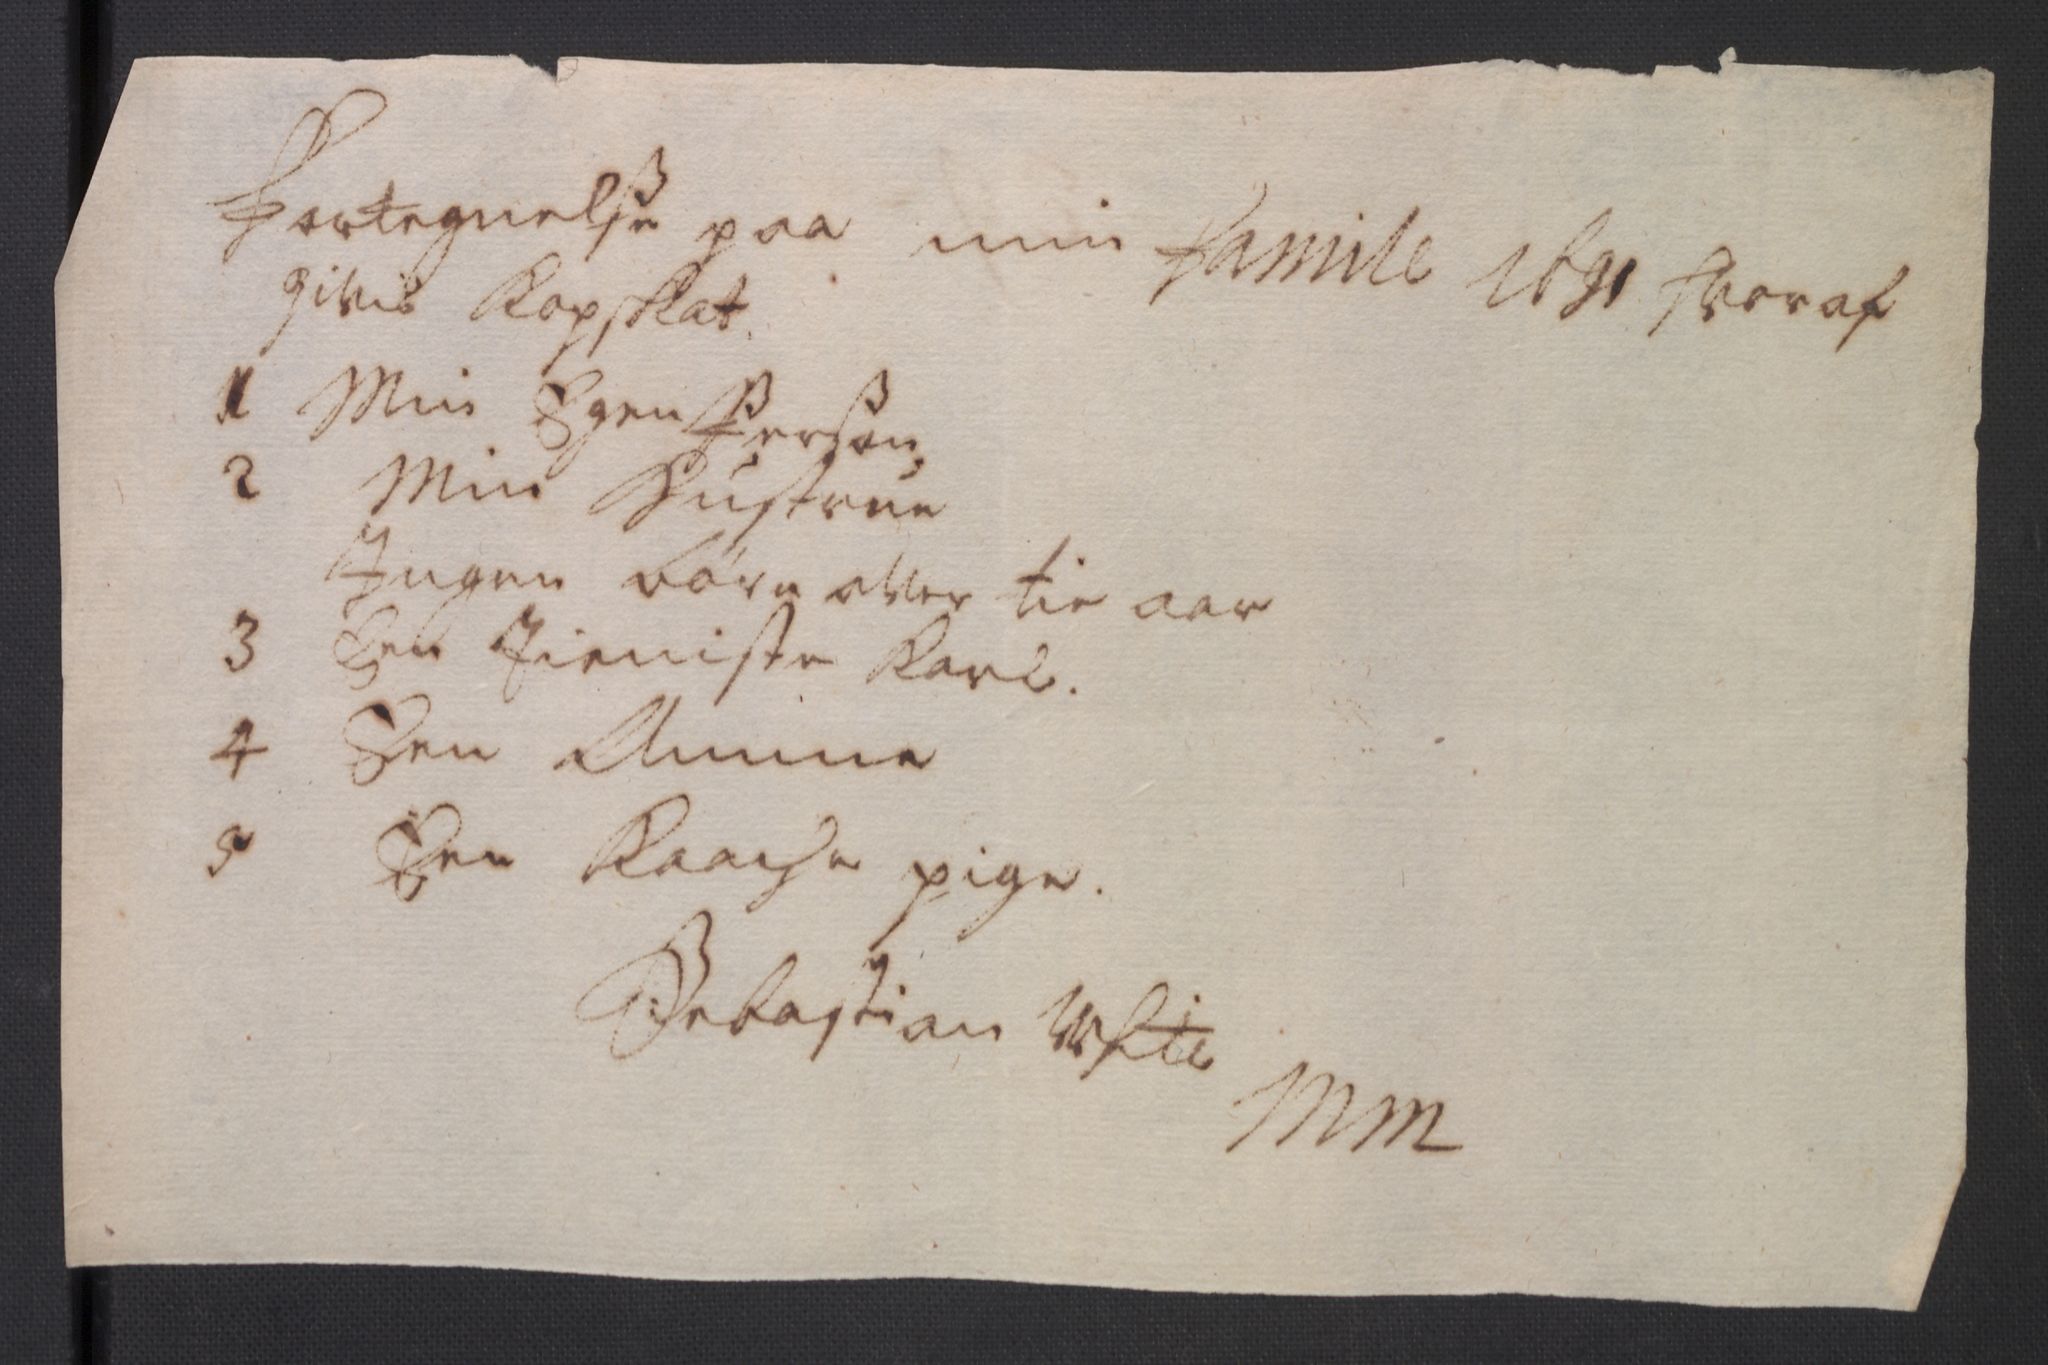 Fortegnelse paa min Famile 1691 hvoraf
givis Kopskat.
1 Min Egen Person,
2 Min Hustrue
Ingen börn over tie aar
3 Een Tieniste Karl.
4 Een Amme
5 Een Kaache pige.
Sebastian
MM